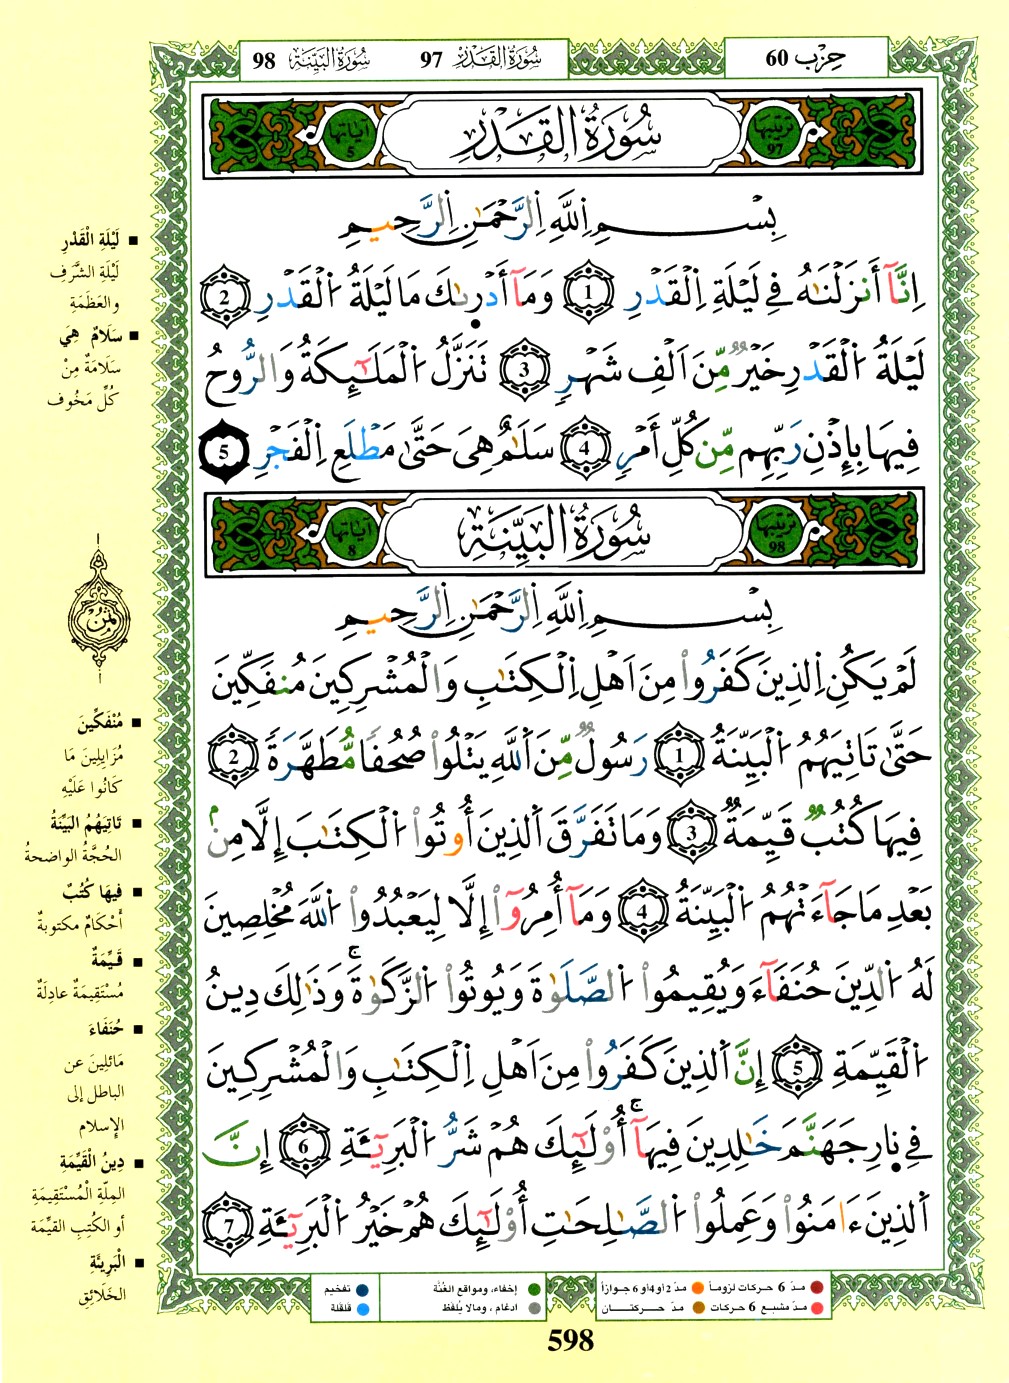 حِزْب 60
سُورَةُ القَدْرِ 97
سُورَةُ البَيِّنَةِ 98
ترتيبها 97
سُورَةُ القَدْرِ
آياتها 5
بِسْمِ اِللَّهِ اِلرَّحْمَٰنِ اِلرَّحِيمِ
اِنَّآ أَنزَلْنَٰهُ فِے لَيْلَةِ اِلْقَدْرِ 1 وَمَآ أَدْر۪ىٰكَ مَا لَيْلَةُ اُ۬لْقَدْرِ 2
لَيْلَةُ اُ۬لْقَدْرِ خَيْرٌ مِّنَ اَلْفِ شَهْرٍ 3 تَنَزَّلُ اُ۬لْمَلَٰٓئِكَةُ وَالرُّوحُ
فِيهَا بِإِذْنِ رَبِّهِم مِّن كُلِّ أَمْرٍ 4 سَلَٰمٌ هِىَ حَتَّىٰ مَطْلَعِ اِلْفَجْرِ 5
ترتيبها 98
سُورَةُ البَيِّنَةِ
آياتها 8
بِسْمِ اِللَّهِ اِلرَّحْمَٰنِ اِلرَّحِيمِ
لَمْ يَكُنِ اِلذِينَ كَفَرُواْ مِنَ اَهْلِ اِلْكِتَٰبِ وَالْمُشْرِكِينَ مُنفَكِّينَ
حَتَّىٰ تَاتِيَهُمُ اُ۬لْبَيِّنَةُ 1 رَسُولٌ مِّنَ اَ۬للَّهِ يَتْلُواْ صُحُفاً مُّطَهَّرَةً 2
فِيهَا كُتُبٌ قَيِّمَةٌ 3 وَمَا تَفَرَّقَ اَ۬لذِينَ أُوتُواْ اُ۬لْكِتَٰبَ إِلَّا مِنۢ
بَعْدِ مَا جَآءَتْهُمُ اُ۬لْبَيِّنَةُ 4 وَمَآ أُمِرُوٓاْ إِلَّا لِيَعْبُدُواْ اُ۬للَّهَ مُخْلِصِينَ
لَهُ اُ۬لدِّينَ حُنَفَآءَ وَيُقِيمُواْ اُ۬لصَّلَوٰةَ وَيُوتُواْ اُ۬لزَّكَوٰةَۚ وَذَٰلِكَ دِينُ
اُ۬لْقَيِّمَةِ 5 إِنَّ اَ۬لذِينَ كَفَرُواْ مِنَ اَهْلِ اِلْكِتَٰبِ وَالْمُشْرِكِينَ
فِے ن۪ارِ جَهَنَّمَ خَٰلِدِينَ فِيهَآۚ أُوْلَٰٓئِكَ هُمْ شَرُّ اُ۬لْبَرِيٓـَٔةِ 6 إِنَّ
اَ۬لذِينَ ءَامَنُواْ وَعَمِلُواْ اُ۬لصَّٰلِحَٰتِ أُوْلَٰٓئِكَ هُمْ خَيْرُ اُ۬لْبَرِيٓـَٔةِ 7
■ لَيْلَةِ الْقَدْرِ
لَيْلَةِ الشَّرَفِ
والعَظَمَةِ
■ سَلَامٌ هِيَ
سَلَامَةٌ مِنْ
كُلِّ مَخُوف
ثمن
■ مُنْفَكِّينَ
مُزَايِلِينَ مَا
كَانُوا عَلَيْهِ
■ تَاتِيَهُمُ البَيِّنَةُ
الحُجَّةُ الواضحةُ
■ فِيهَا كُتُبٌ
أَحْكَامٌ مكتوبةٌ
■ قَيِّمَةٌ
مُسْتَقِيمَةٌ عادِلَةٌ
■ حُنَفَاءَ
مَائِلِينَ عن
الباطل إلى
الإسلام
■ دِينُ الْقَيِّمَةِ
المِلّةِ الْمُسْتَقِيمَةِ
أو الكُتِبِ القيِّمَة
■ الْبَرِيئَةِ
الخَلَائِقِ
مدّ 6 حركات لزوماً
مدّ 2 أو 4 أو 6 جوازاً
مدّ مشبع 6 حركات
مدّ حركتان
إخفاء، ومواقع الغُنَّة
ادغام ، ومالا يُلفَظ
تفخيم
قلقلة
598